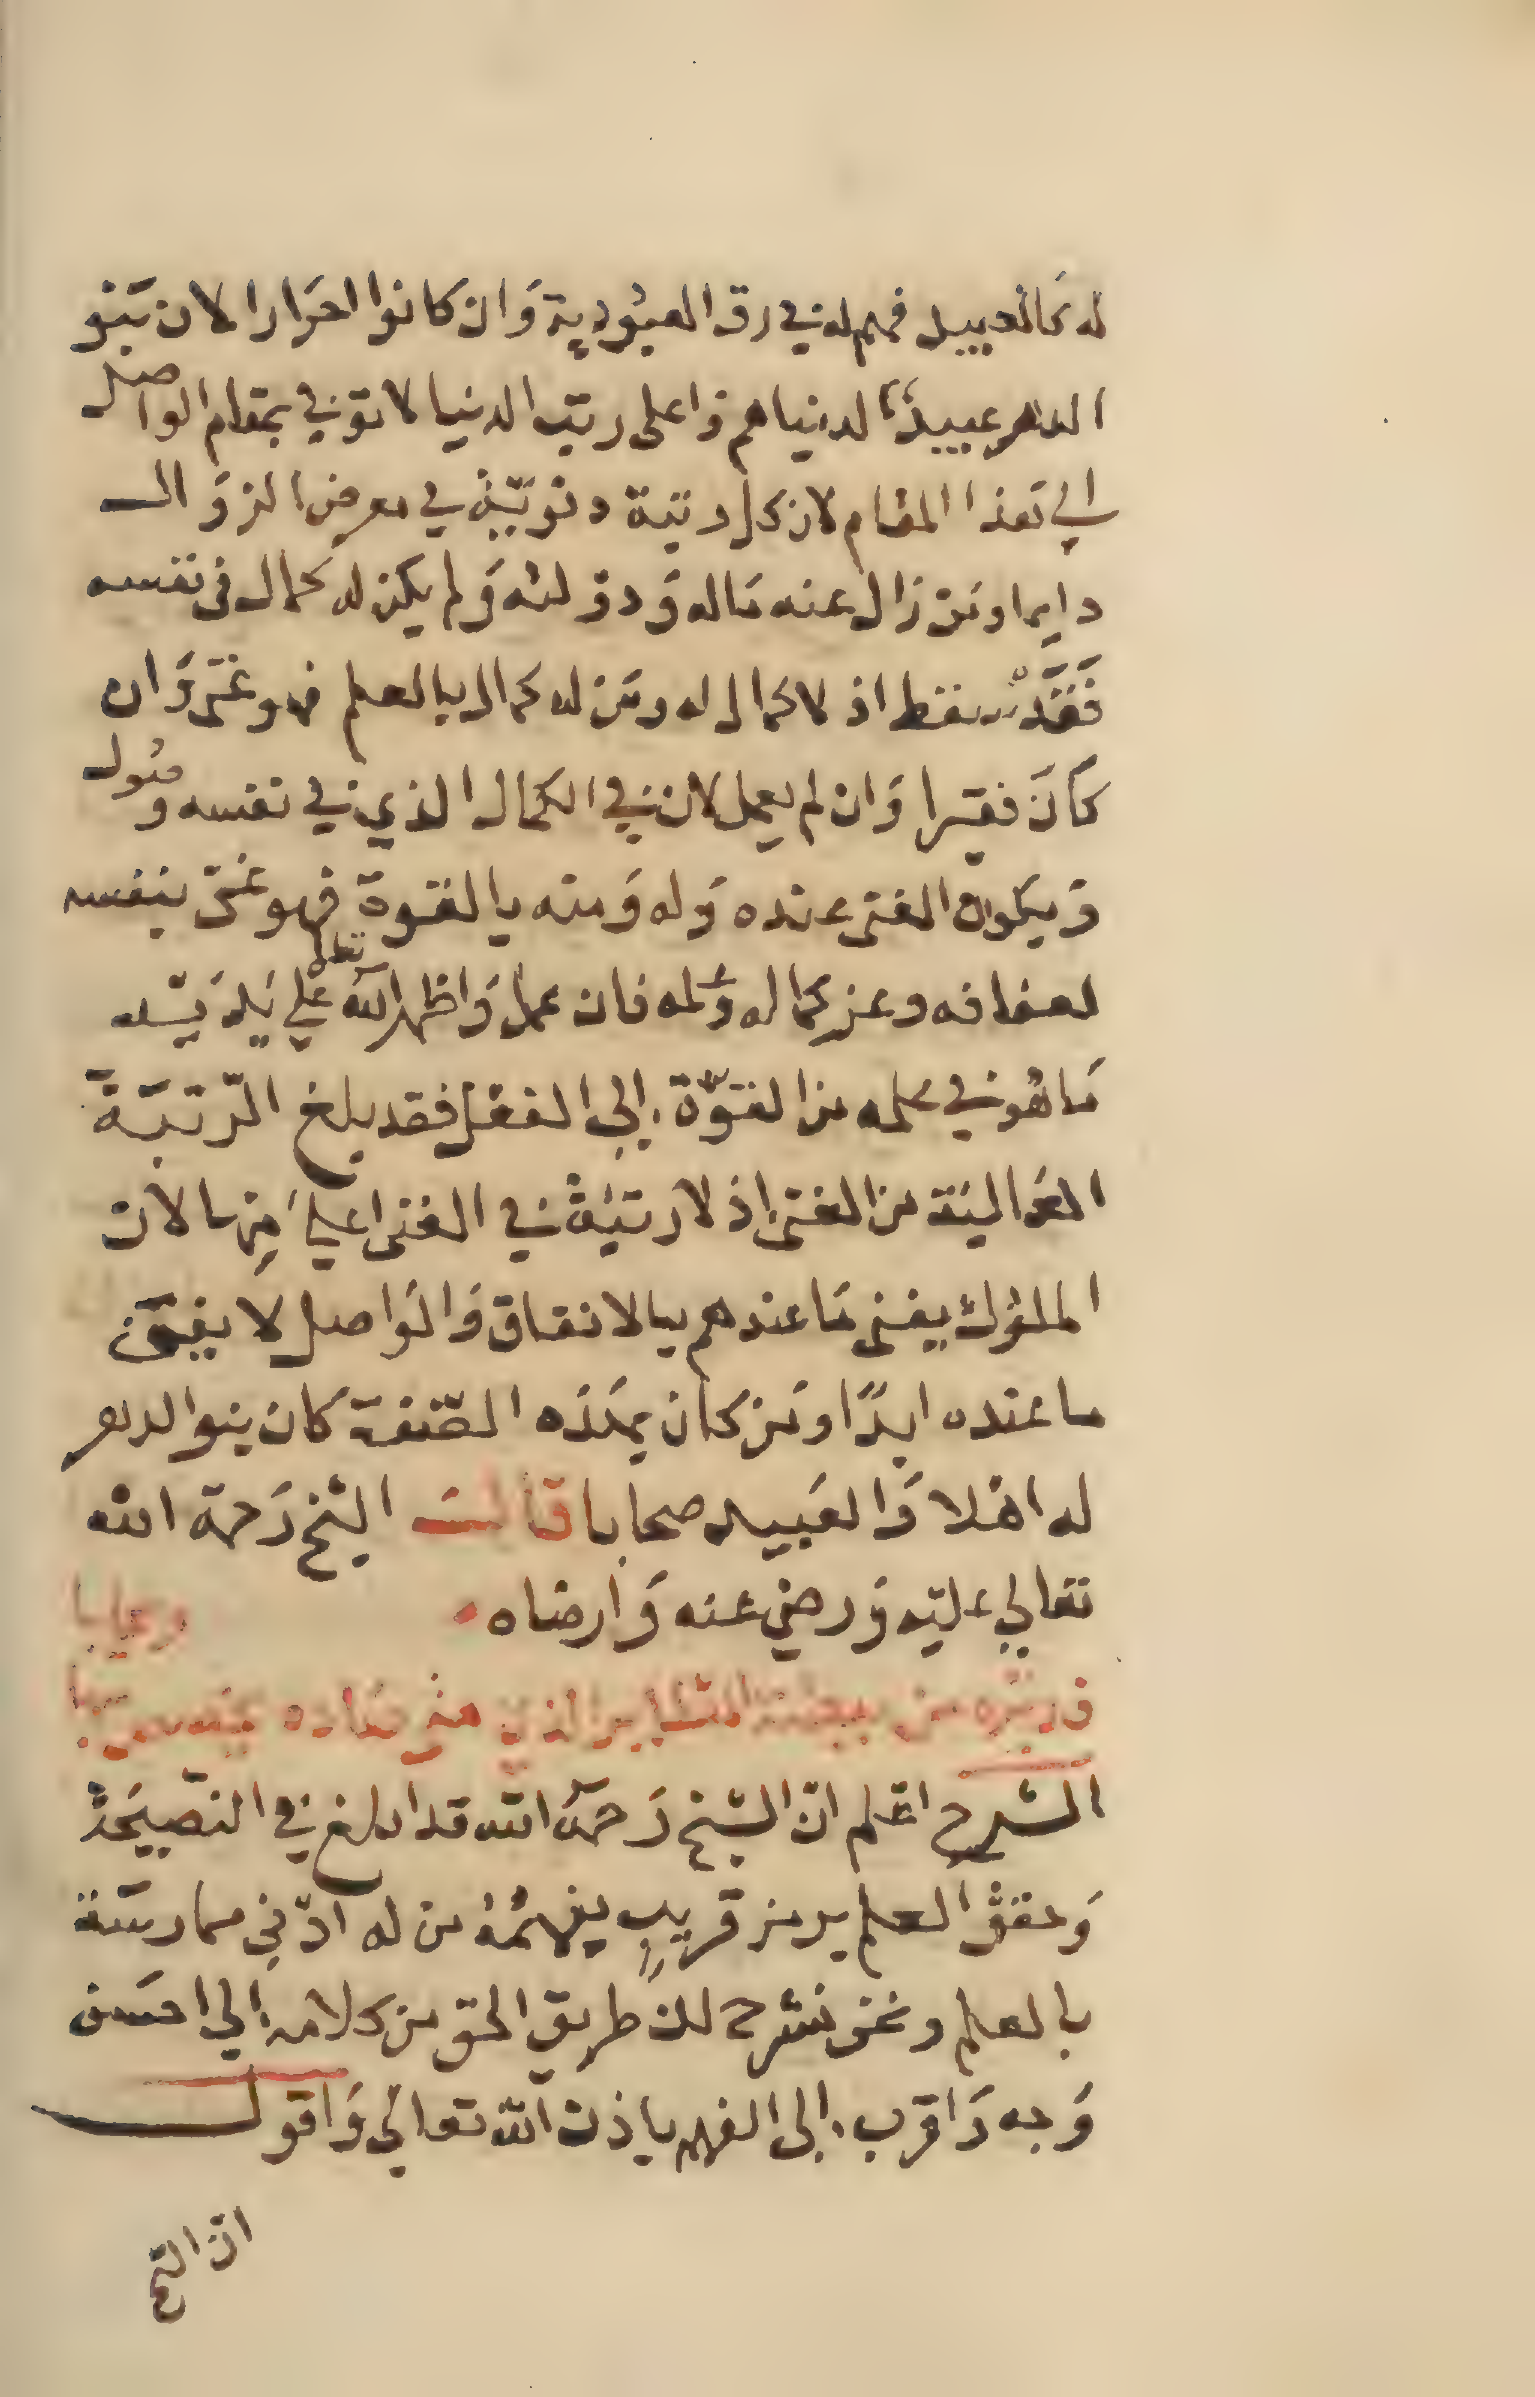 له كالعبيد فهم له في رق العبودية وان كانوا احرارا لان بنو
الدهر عبيدًا لدنياهم واعلى رتب الدنيا لا توفي بمقام الواصل
الي هذا المقام لان كل رتبة دنويّة في معرض الزوال
دايما ومن زال عنه ماله ودولته ولم يكن له كمال في نفسه
فقد سقط اذ لا كمال له ومن له كمال بالعلم فهو غني وان
كان فقيرا وان لم يعمل لان في الكمال الذي في نفسه وقول
ويكون الغنى عنده وله ومنه بالقوة فهو غني بنفسه
لعفافه وعز كماله وعلمه فان عمل واظهر الله تعالى علي يديه
ما هو في علمه من القوّة الى الفعل فقد بلغ الرّتبة
العالية من الغنى اذ لا رتبة في الغنى اعلي منها لان
الملوك يفنى ما عندهم بالانفاق والواصل لا يفنى
ما عنده ابدًا ومن كان بهذه الصّفة كان بنوا الدهر
له اهلا والعبيد صحابا قال الشيخ رحمة الله
تعالي عليه ورضي عنه وارضاه
الشرح اعلم انّ الشيخ رحمه الله قد ابلغ في النصيحة
وحقق العلم برمز قريبٍ يفهمه من له ادنى ممارسة
بالعلم ونحن نشرح لك طريق الحق من كلامه الي احسن
وجه واقرب الى الفهم باذن الله تعالي واقول
انّ الشيخ